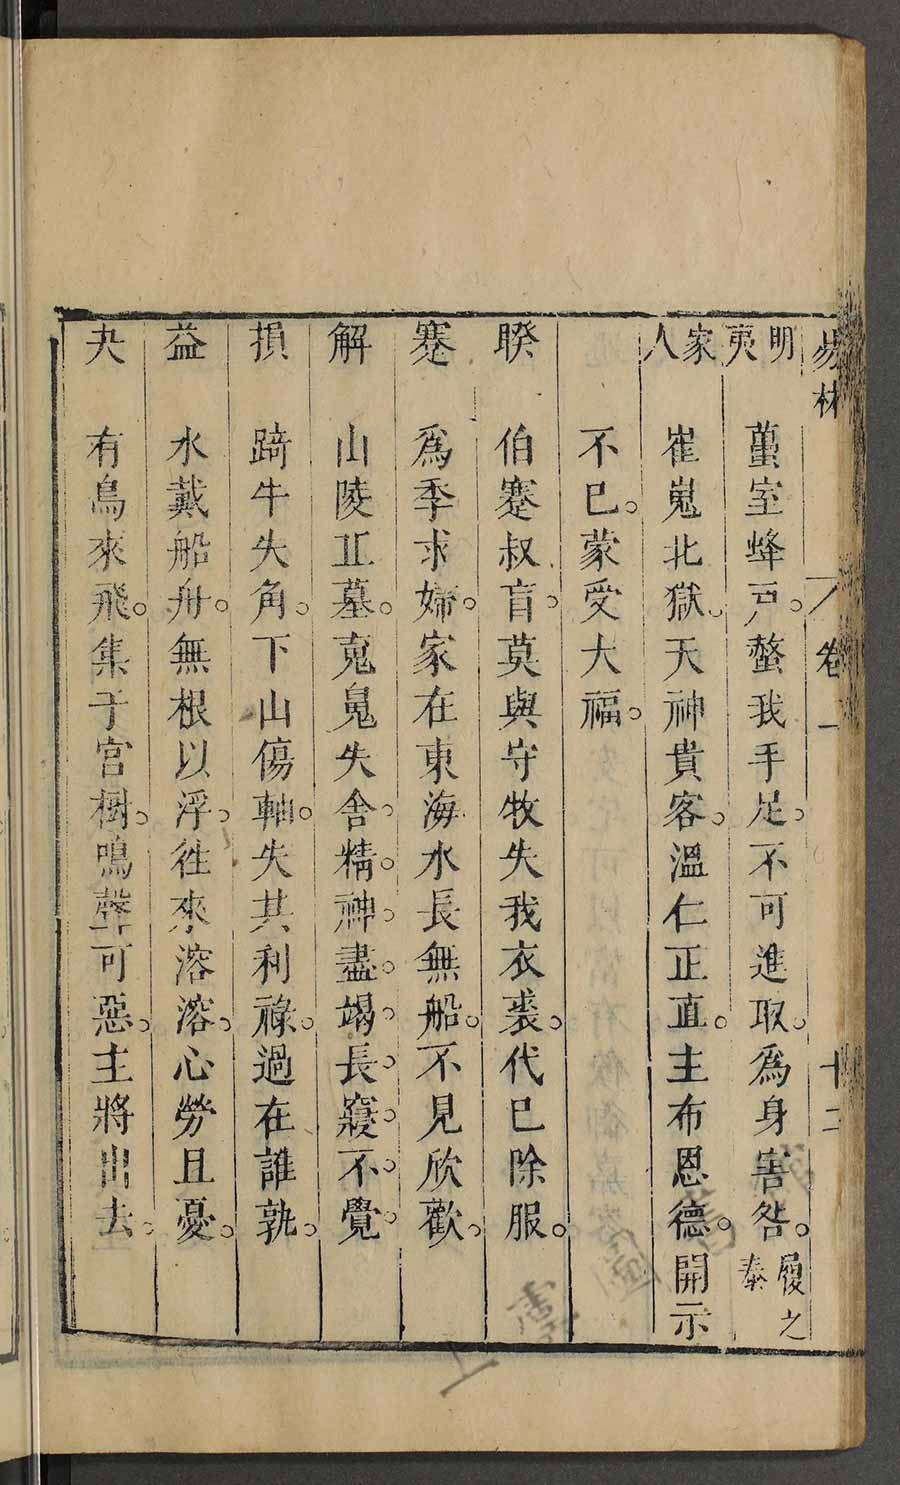 易林 卷一 十二
明夷 蠆室蜂戸。螫我手足。不可進取。為身害咎。履之泰
家人 崔嵬北獄。天神貴客。溫仁正直。主布恩德。開示
不已。蒙受大福。
睽 伯蹇叔盲。莫與守牧失我衣裘。代已除服。
蹇 為季求婦。家在東海水長無船。不見欣歡。
解 山陵丘墓。䰟鬼失舎。精。神。盡。竭。長。寢。不。覺。
損 踦牛失角。下山傷軸。失其利祿。過在誰孰。
益 水戴船舟。無根以浮。徃來溶溶。心勞且憂。
夬 有鳥來飛。集于宮樹。鳴聲可惡。主將出去。